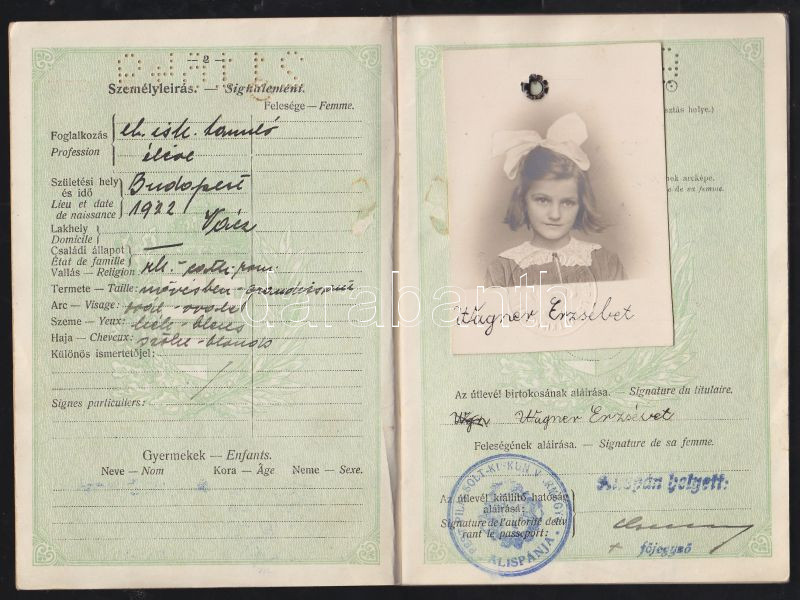 — 2 —
Személyleírás. — Signalement.
Felesége — Femme.
Foglalkozás
Profession
el. isk. tanuló
élève
Születési hely
és idő
Lieu et date
de naissance
Budapest
1922
Lakhely
Domicile
Vác
Családi állapot
État de famille
—
Vallás — Religion rk. - cath. rom.
Termete — Taille: növésben -
Arc — Visage:
Szeme — Yeux: kék - bleus
Haja — Cheveux: szőke - blonds
Különös ismertetőjel:
Signes particuliers:
Gyermekek — Enfants.
Neve — Nom Kora — Âge Neme — Sexe.
darabanth
Wagner Erzsébet
Az útlevél birtokosának aláírása. — Signature du titulaire.
Wagner Erzsébet
Feleségének aláírása. — Signature de sa femme.
Az útlevél kiállító hatóság
aláírása:
Signature de l'autorité déliv
rant le passeport:
ALISPÁNJA
Alispán helyett:
főjegyző